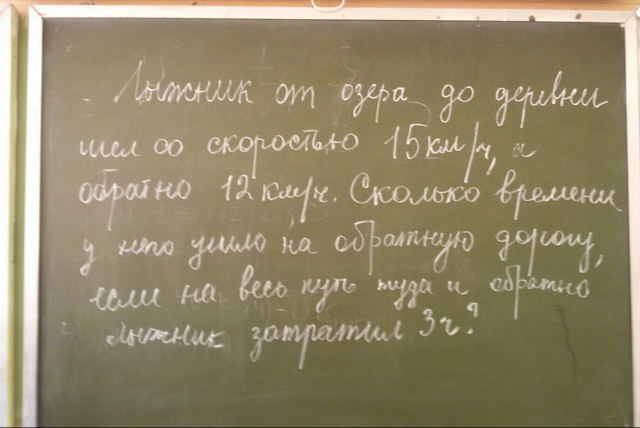 Лыжник от озера до деревни
шел со скоростью 15км/ч, а
обратно 12км/ч. Сколько времени
у него ушло на обратную дорогу,
если на весь путь туда и обратно
лыжник затратил 3ч?